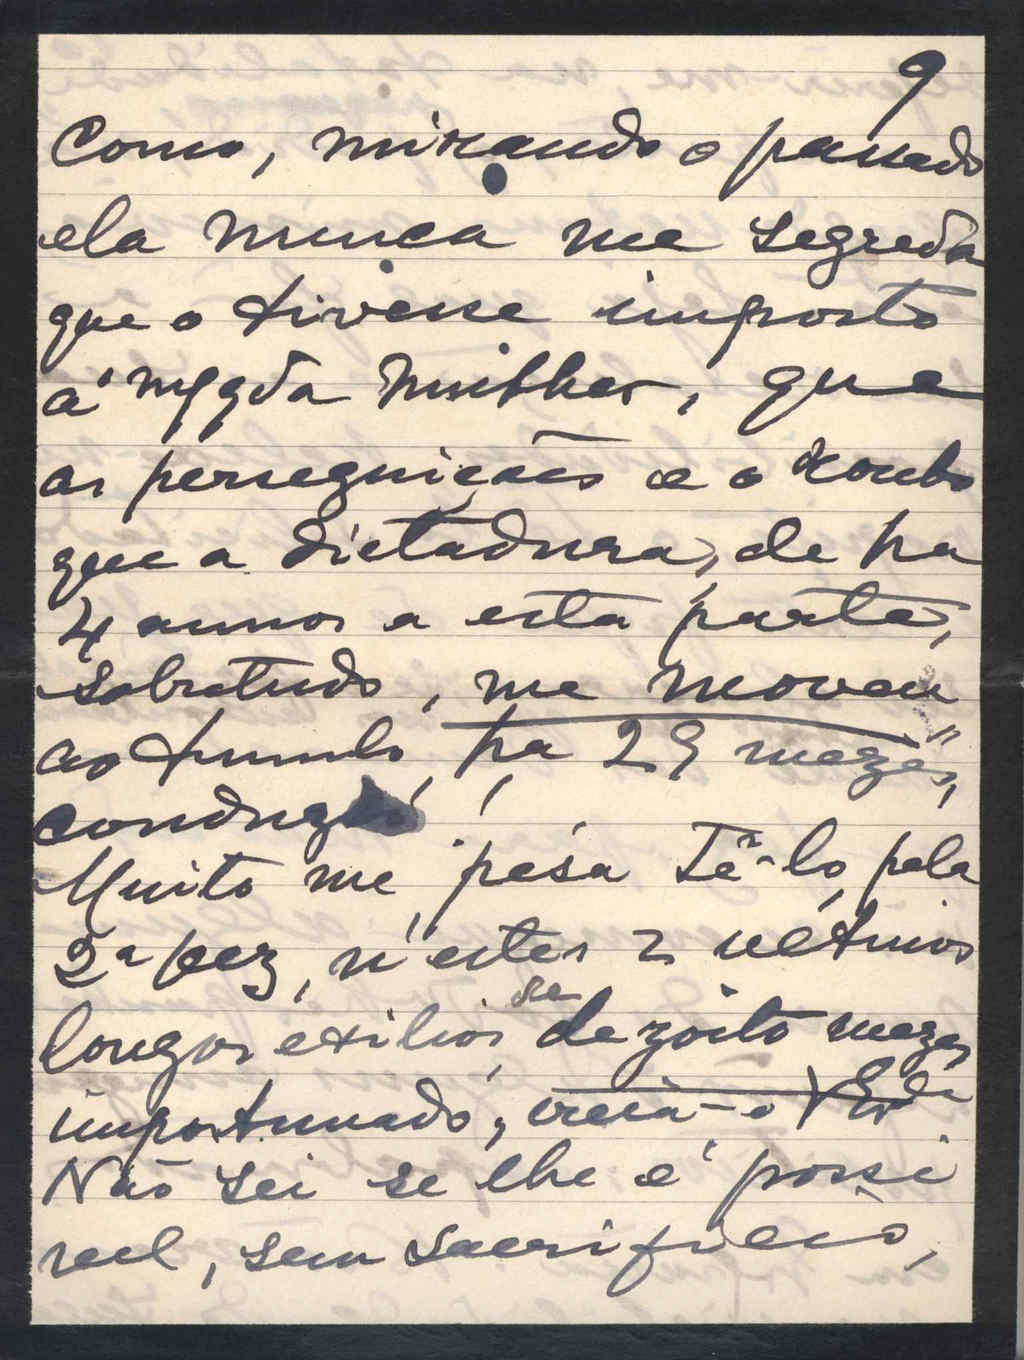 9
Como, mirando o passado
ela nunca me segreda
que o tivesse imposto
á mulher, que
as perseguições e o roubo
que a dictadura, de ha
4 annos a esta parte,
sobretudo, me moveu
ao tumulo, ha 29 mezes,
conduziu!
Muito me pésa Tê-lo, pela
2ª vez, n'estes 2 ultimos
longos exilios, de
dezoito mezes
importunado, creia-o
Não sei se lhe é possi
vel, sem sacrificio,